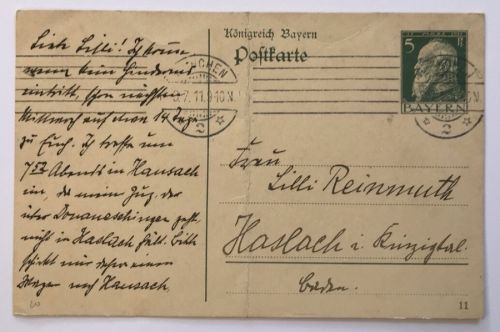 Königreich Bayern
Postkarte
5 Pf
BAYERN
MÜNCHEN
5.7.11. 9-10 N.
2
Liebe Lilli! Ich komme
wenn kein Hindernis
eintritt, schon nächsten
Mittwoch auf etwa 14 Tage
zu Euch. Ich treffe um
7 52 Abends in Hausach
ein, da mein Zug, der
über Donaueschingen geht,
nicht in Haslach hält. Bitte
schickt mir daher einen
Wagen nach Hausach.
Frau
Lilli Reinmuth
Haslach i. Kinzigtal.
Baden.
11